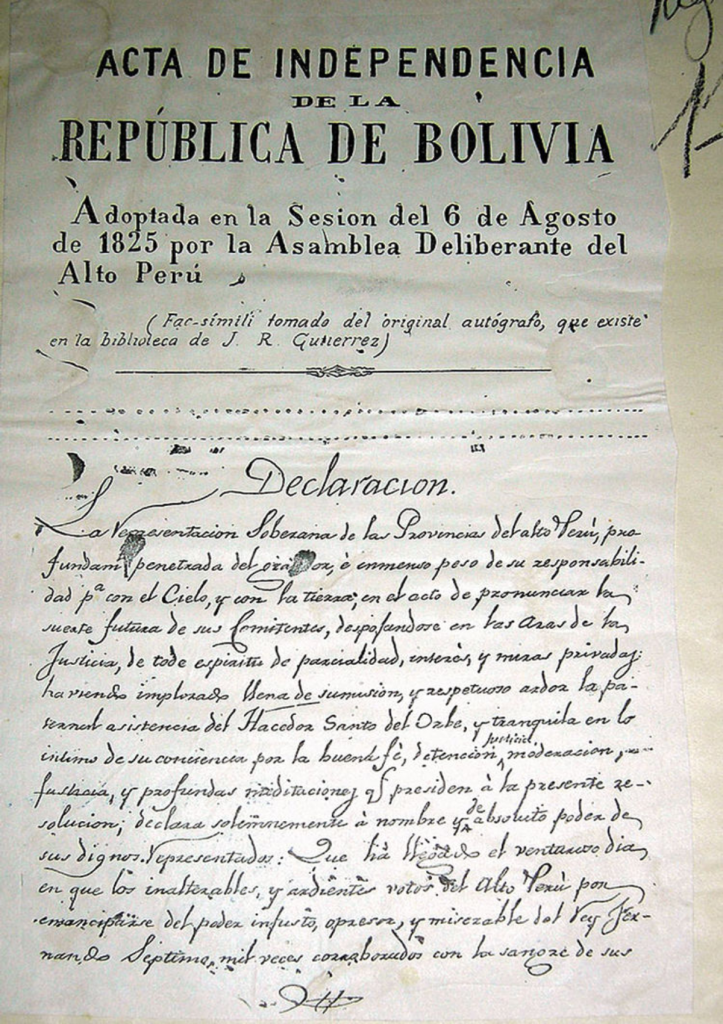 ACTA DE INDEPENDENCIA
DE LA
REPÚBLICA DE BOLIVIA
Adoptada en la Sesion del 6 de Agosto
de 1825 por la Asamblea Deliberante del
Alto Perú
(Fac-símili tomado del original autógrafo, que existe
en la biblioteca de J. R. Gutierrez)
Declaracion.
La Representacion Soberana de las Provincias del alto Perú, pro-
fundam penetrada del grandor, é inmenso peso de su responsabili-
dad pª con el Cielo, y con la tierra, en el acto de pronunciar la
suerte futura de sus Comitentes, despojandose en las Aras de la
Justicia, de todo espiritu de parcialidad, interés, y miras privadas;
haviendo implorado llena de sumisión, y respetuoso ardor la pa-
ternal asistencia del Hacedor Santo del Orbe, y tranquila en lo
intimo de su conciencia por la buena fé, detención, justicia, moderacion,
y profundas meditaciones qe presiden à la presente re-
solucion; declara solemnemente à nombre y de absoluto poder de
sus dignos Representados: Que há llegado el venturoso dia
en que los inalterables, y ardientes votos del Alto Perú por
emanciparse del poder injusto, opresor, y miserable del Rey Fer-
nando Septimo, mil veces corroborados con la sangre de sus